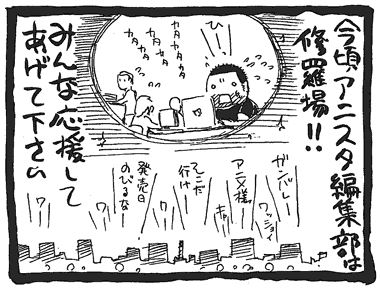 今頃アニスタ編集部は
修羅場!!
ひー!!
カタカタカタ
カタカタカタカタ
カタカタカタ
みんな応援して
あげて下さい
ガンバレー
ワッショイ
アニメ様
キャー
そこだ
行け
ワー
発売日
のびるな
ワー